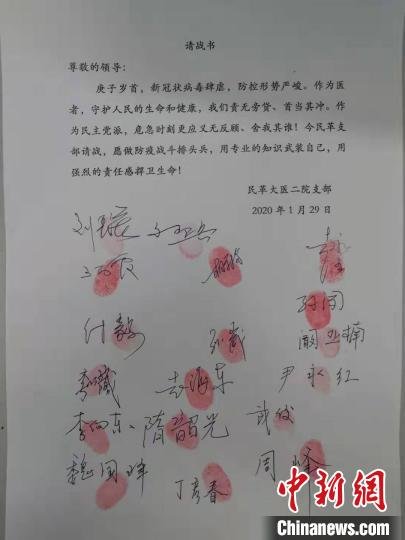 请战书
尊敬的领导：
庚子岁首，新冠状病毒肆虐，防控形势严峻。作为医
者，守护人民的生命和健康，我们责无旁贷、首当其冲。作
为民主党派，危急时刻更应义无反顾、舍我其谁！今民革支
部请战，愿做防疫战斗排头兵，用专业的知识武装自己，用
强烈的责任感捍卫生命！
民革大医二院支部
2020 年 1 月 29 日
付毅
尹永红
李向东、隋韶光 武俊
魏国峰 丁彦春 周峰
中新网
Chinanews.com